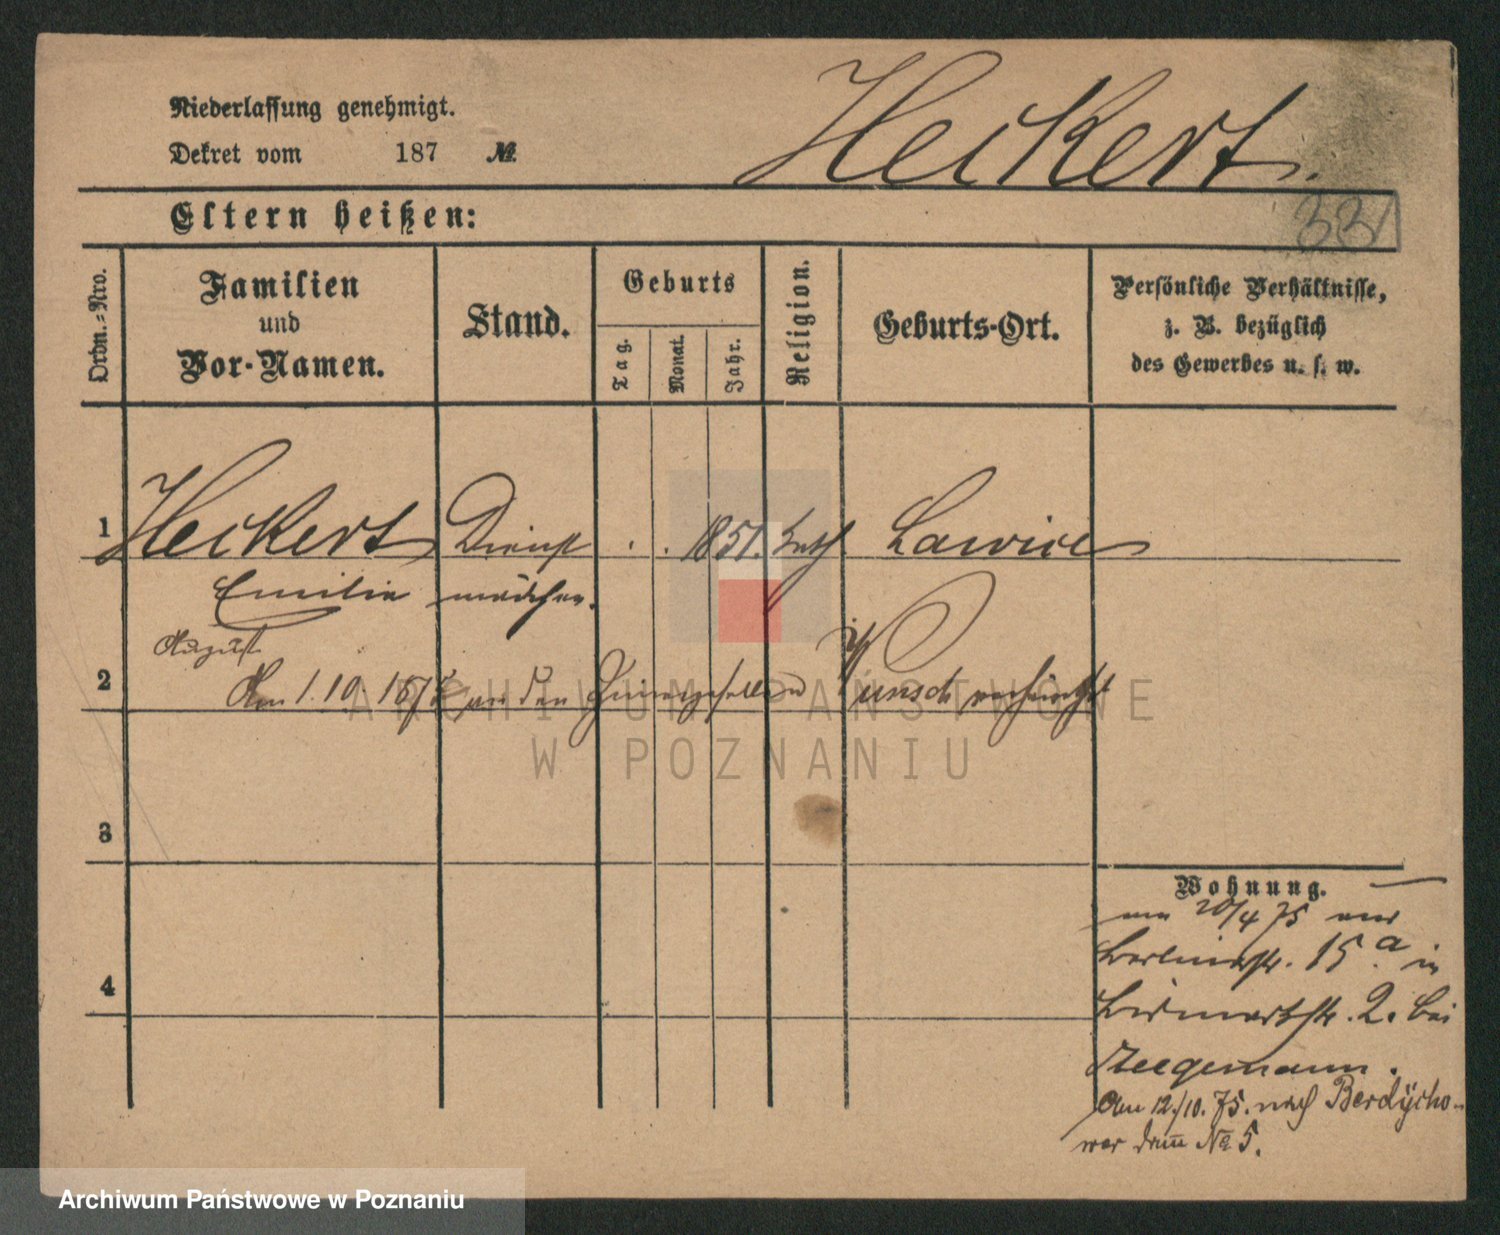 Niederlassung genehmigt.
Dekret vom 187 №
Heckert.
331
Eltern heißen:
Ordn.-Nro.
Familien
und
Vor-Namen.
Stand.
Geburts
Tag.
Monat.
Jahr.
Religion.
Geburts-Ort.
Persönliche Verhältnisse,
z. B. bezüglich
des Gewerbes u. s. w.
1 Heckert Dienst 1851. kath Lawice
Emilie mädchen.
August
2 Am 1.10. 187 an den Wunsch verheirathet
3
4
Wohnung.
am 20/4 75 aus
Berlinerstr. 15.a in
Bismarckstr. 2. bei
Steegemann.
Am 12./10. 75. nach Berdÿcho-
wer № 5.
ARCHIWUM PAŃSTWOWE
W POZNANIU
Archiwum Państwowe w Poznaniu